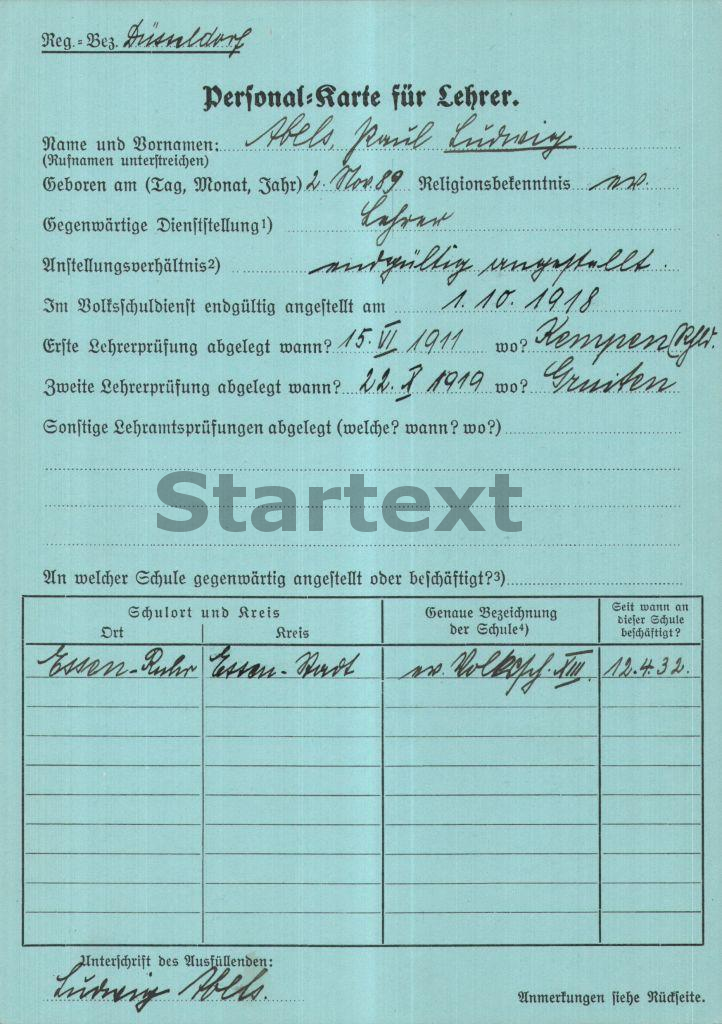 Reg.-Bez. Düsseldorf
Personal-Karte für Lehrer.
Name und Vornamen: Abels, Paul Ludwig
(Rufnamen unterstreichen)
Geboren am (Tag, Monat, Jahr) 2. Nov. 89 Religionsbekenntnis ev.
Gegenwärtige Dienststellung¹) Lehrer
Anstellungsverhältnis²) endgültig angestellt.
Im Volksschuldienst endgültig angestellt am 1. 10. 1918
Erste Lehrerprüfung abgelegt wann? 15. VI 1911 wo? Kempen (Rhld.
Zweite Lehrerprüfung abgelegt wann? 22. X 1919 wo? Gruiten
Sonstige Lehramtsprüfungen abgelegt (welche? wann? wo?)
Startext
An welcher Schule gegenwärtig angestellt oder beschäftigt?³)
Schulort und Kreis Genaue Bezeichnung der Schule⁴) Seit wann an dieser Schule beschäftigt?
Ort Kreis
Essen-Ruhr Essen-Stadt ev. Volkssch. XIII. 12.4.32.
Unterschrift des Ausfüllenden:
Ludwig Abels.
Anmerkungen siehe Rückseite.